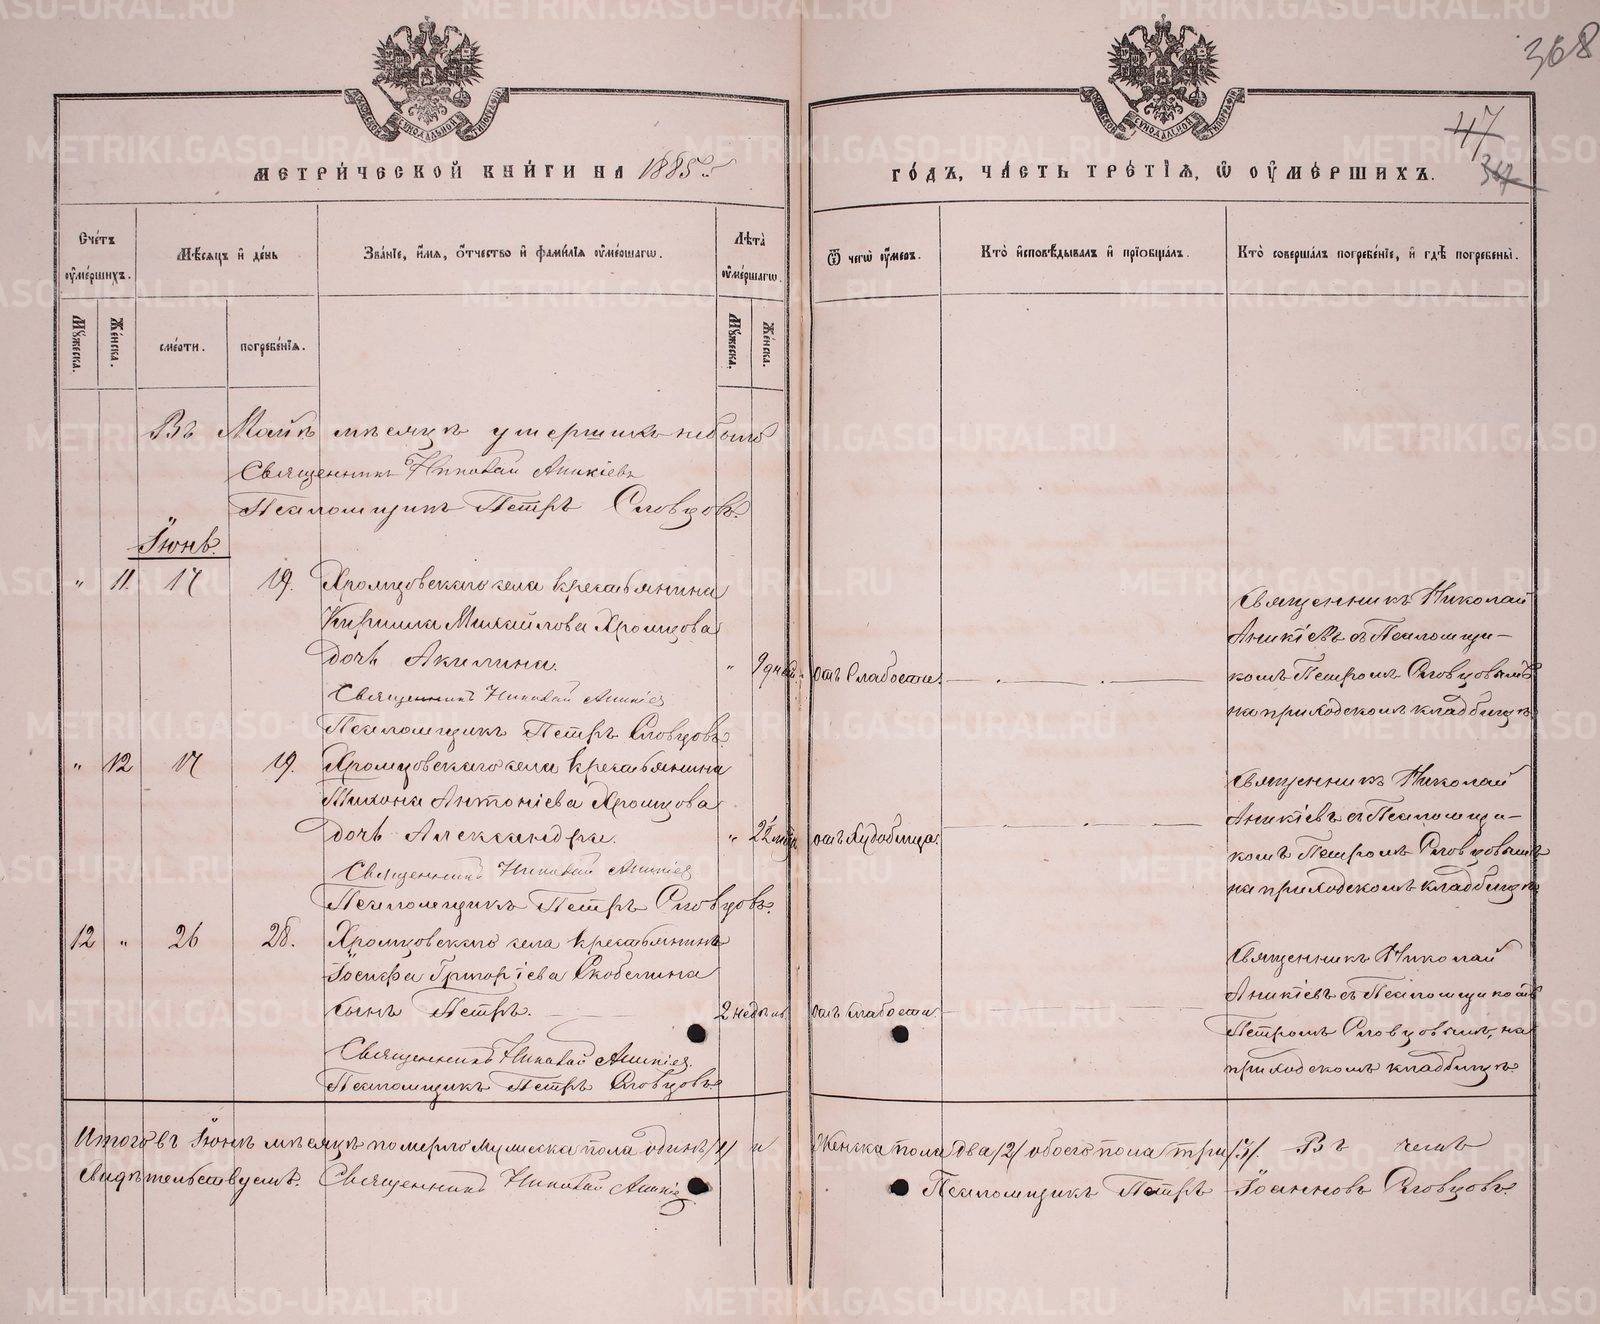 368
47
367
МЕТРИ́ЧЕСКОЙ КНИ́ГИ НА 1885й
ГО́ДЪ, ЧА́СТЬ ТРЕ́ТІѦ, Ѡ ОУМЕ́РШИХЪ.
Сче́тъ оуме́ршихъ.
Мѣ́сяцъ и҆ де́нь
Зва́нїе, и҆́мѧ, ѻ҆́тчество и҆ фами́лїѧ оуме́ршагѡ.
Лѣ́та оуме́ршагѡ.
Ѿ чегѡ̀ оу́меръ.
Кто̀ и҆сповѣ́дывалъ и҆ прїобща́лъ.
Кто̀ соверша́лъ погребе́нїе, и҆ гдѣ̀ погребены̀.
Мꙋ́жеска.
Же́нска.
сме́рти.
погребе́нїѧ.
Мꙋ́жеска.
Же́нска.
Въ Маѣ мѣсяцѣ умершихъ небыло
Священникъ Николай Аникіевъ
Псаломщикъ Петръ Словцовъ.
Іюнь.
" 11. 17 19. Хромцовскаго села крестьянина
Кирилла Михайлова Хромцова
дочь Акилина. " 9 дней. отъ слабости.
Священникъ Николай Аникіев
Псаломщикъ Петръ Словцовъ.
Священникъ Николай
Аникіевъ съ Псаломщи-
комъ Петромъ Словцовымъ
на приходскомъ кладбищѣ.
" 12 17 19. Хромцовскаго села крестьянина
Тихона Антоніева Хромцова
дочь Александра. " 2 отъ худобища.
Священникъ Николай Аникіев
Псаломщикъ Петръ Словцовъ.
Священникъ Николай
Аникіевъ съ Псаломщи-
комъ Петромъ Словцовымъ
на приходскомъ кладбищѣ.
12 " 26 28. Хромцовскаго села крестьянина
Іосифа Григоріева Скобелина
сынъ Петръ. 2 недѣль отъ слабости
Священникъ Николай Аникіев.
Псаломщикъ Петръ Словцовъ.
Священникъ Николай
Аникіевъ съ Псаломщикомъ
Петромъ Словцовымъ, на
приходскомъ кладбищѣ.
Итого въ Іюнѣ мѣсяцѣ померло мужеска пола одинъ /1/ и Женска пола два /2/ обоего пола три /3/. Въ чемъ
свидѣтельствуемъ. Священникъ Николай Аникіев Псаломщикъ Петръ Іоанновъ Словцовъ.
METRIKI.GASO-URAL.RU